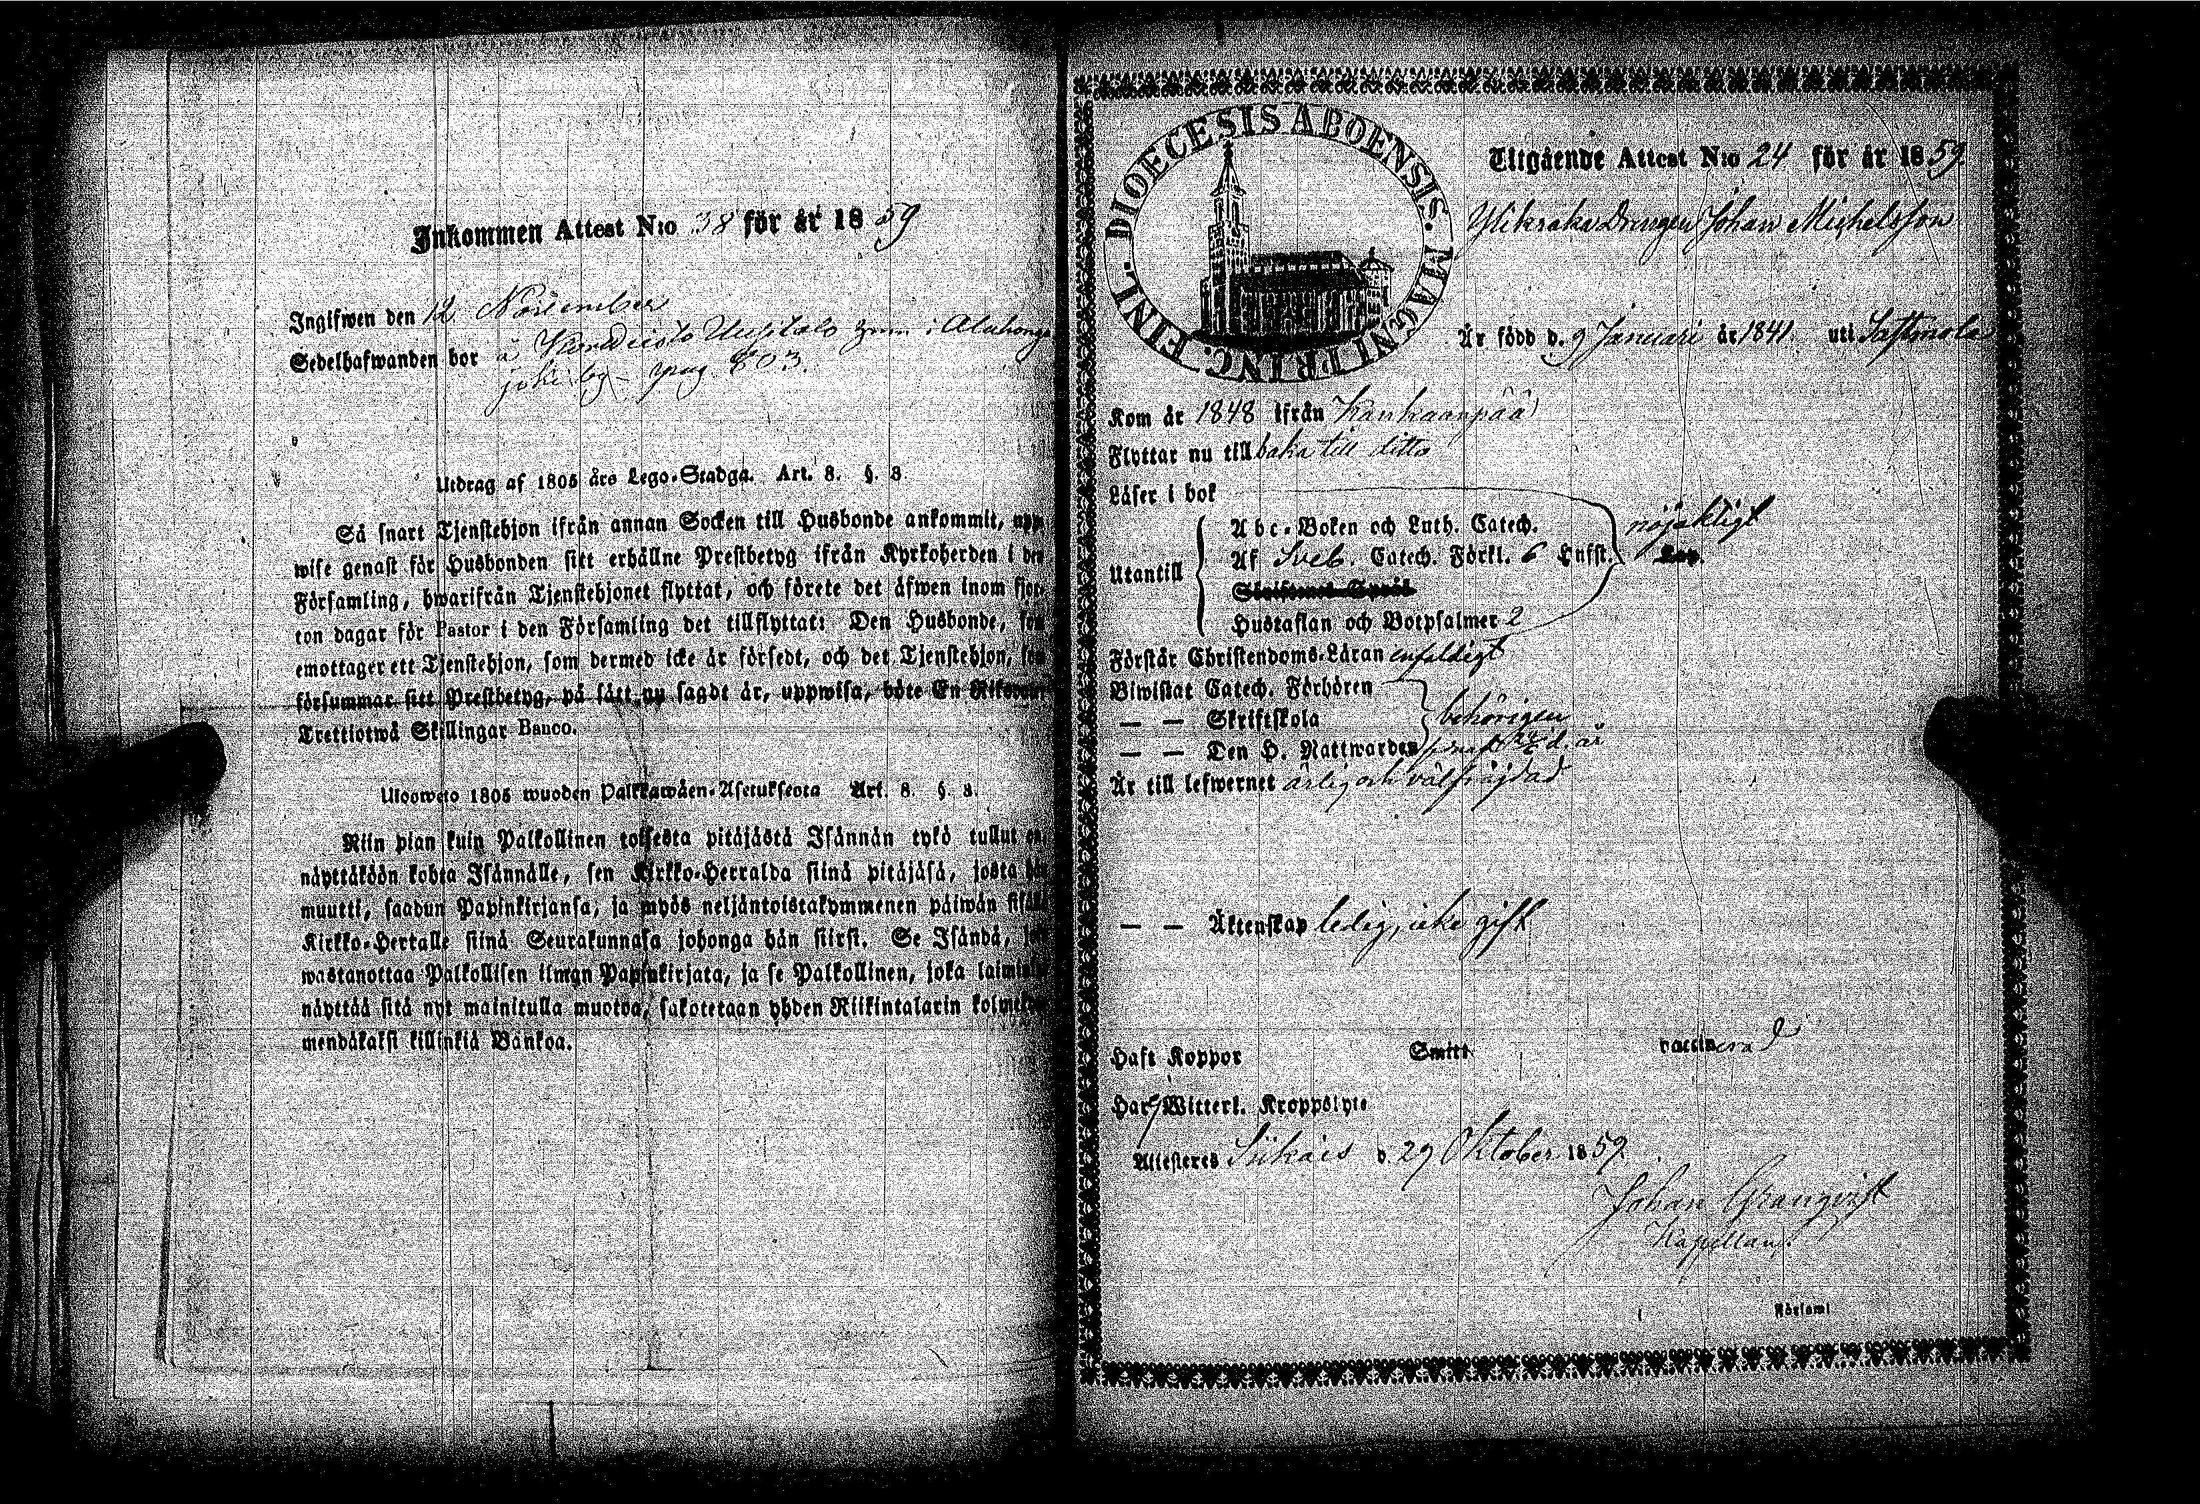 Inkommen Attest N:o 38 för år 1859
Ingifwen den 12 November
Sedelhafwanden bor å
joki by pag. 803.
Utdrag af 1805 års Lego-Stadga. Art. 8. §. 8
Så snart Tjenstehjon ifrån annan Socken till Husbonde ankommit, upp-
wise genast för Husbonden sitt erhållne Prestbetyg ifrån Kyrkoherden i den
Församling, hwarifrån Tjenstehjonet flyttat, och förete det äfwen inom fjor-
ton dagar för Pastor i den Församling det tillflyttat: Den Husbonde, som
emottager ett Tjenstehjon, som dermed icke är försedt, och det Tjenstehjon, som
försummar sitt Prestbetyg, på sätt nu sagdt är, uppwisa, böte En Riksdaler
Trettiotwå Skillingar Banco.
Ulosweto 1805 wuoden Palkkawäen-Asetuksesta Art. 8. §. 8.
Niin pian kuin Palkollinen toisesta pitäjästä Isännän tykö tullut on,
näyttäköön kohta Isännälle, sen Kirkko-Herralda siinä pitäjäsä, josta hän
muutti, saadun Papinkirjansa, ja myös neljäntoistakymmenen päiwän sisällä
Kirkko-Herralle siinä Seurakunnasa johonga hän siirsi. Se Isändä, joka
wastanottaa Palkollisen ilman Papinkirjata, ja se Palkollinen, joka laiminlyö
näyttää sitä nyt mainitulla muotoa, sakotetaan yhden Riikintalarin kolmekym-
mendäkaksi killinkiä Bankoa.
DIOECESIS ABOENSIS. MAGNI PRINC. FINL.
Utgående Attest N:o 24 för år 1859
Drengen Johan Michelsson
Är född d. 9 Januari år 1841. uti Sastmola
Kom år 1848 ifrån Kankaanpää
Flyttar nu tillbaka till ditto
Läser i bok
Utantill
Abc-Boken och Luth. Catech.
Af Sveb. Catech. Förkl. 6 Hufst.
nöjaktigt
Hustaflan och Botpsalmer 2
Förstår Christendoms-Läran enfaldigt
Biwistat Catech. Förhören
— — Skriftskola
behörigen
— — Den H. Nattwarden
Är till lefwernet ärlig och välfrägdad
— — Äktenskap ledig, icke gift
Haft Koppor Smitt vaccinerad
Har Witterl. Kroppslyte
Attesteres Siikais d. 29 Oktober 1859
Johan Granqvist
Kapellan.
Församl